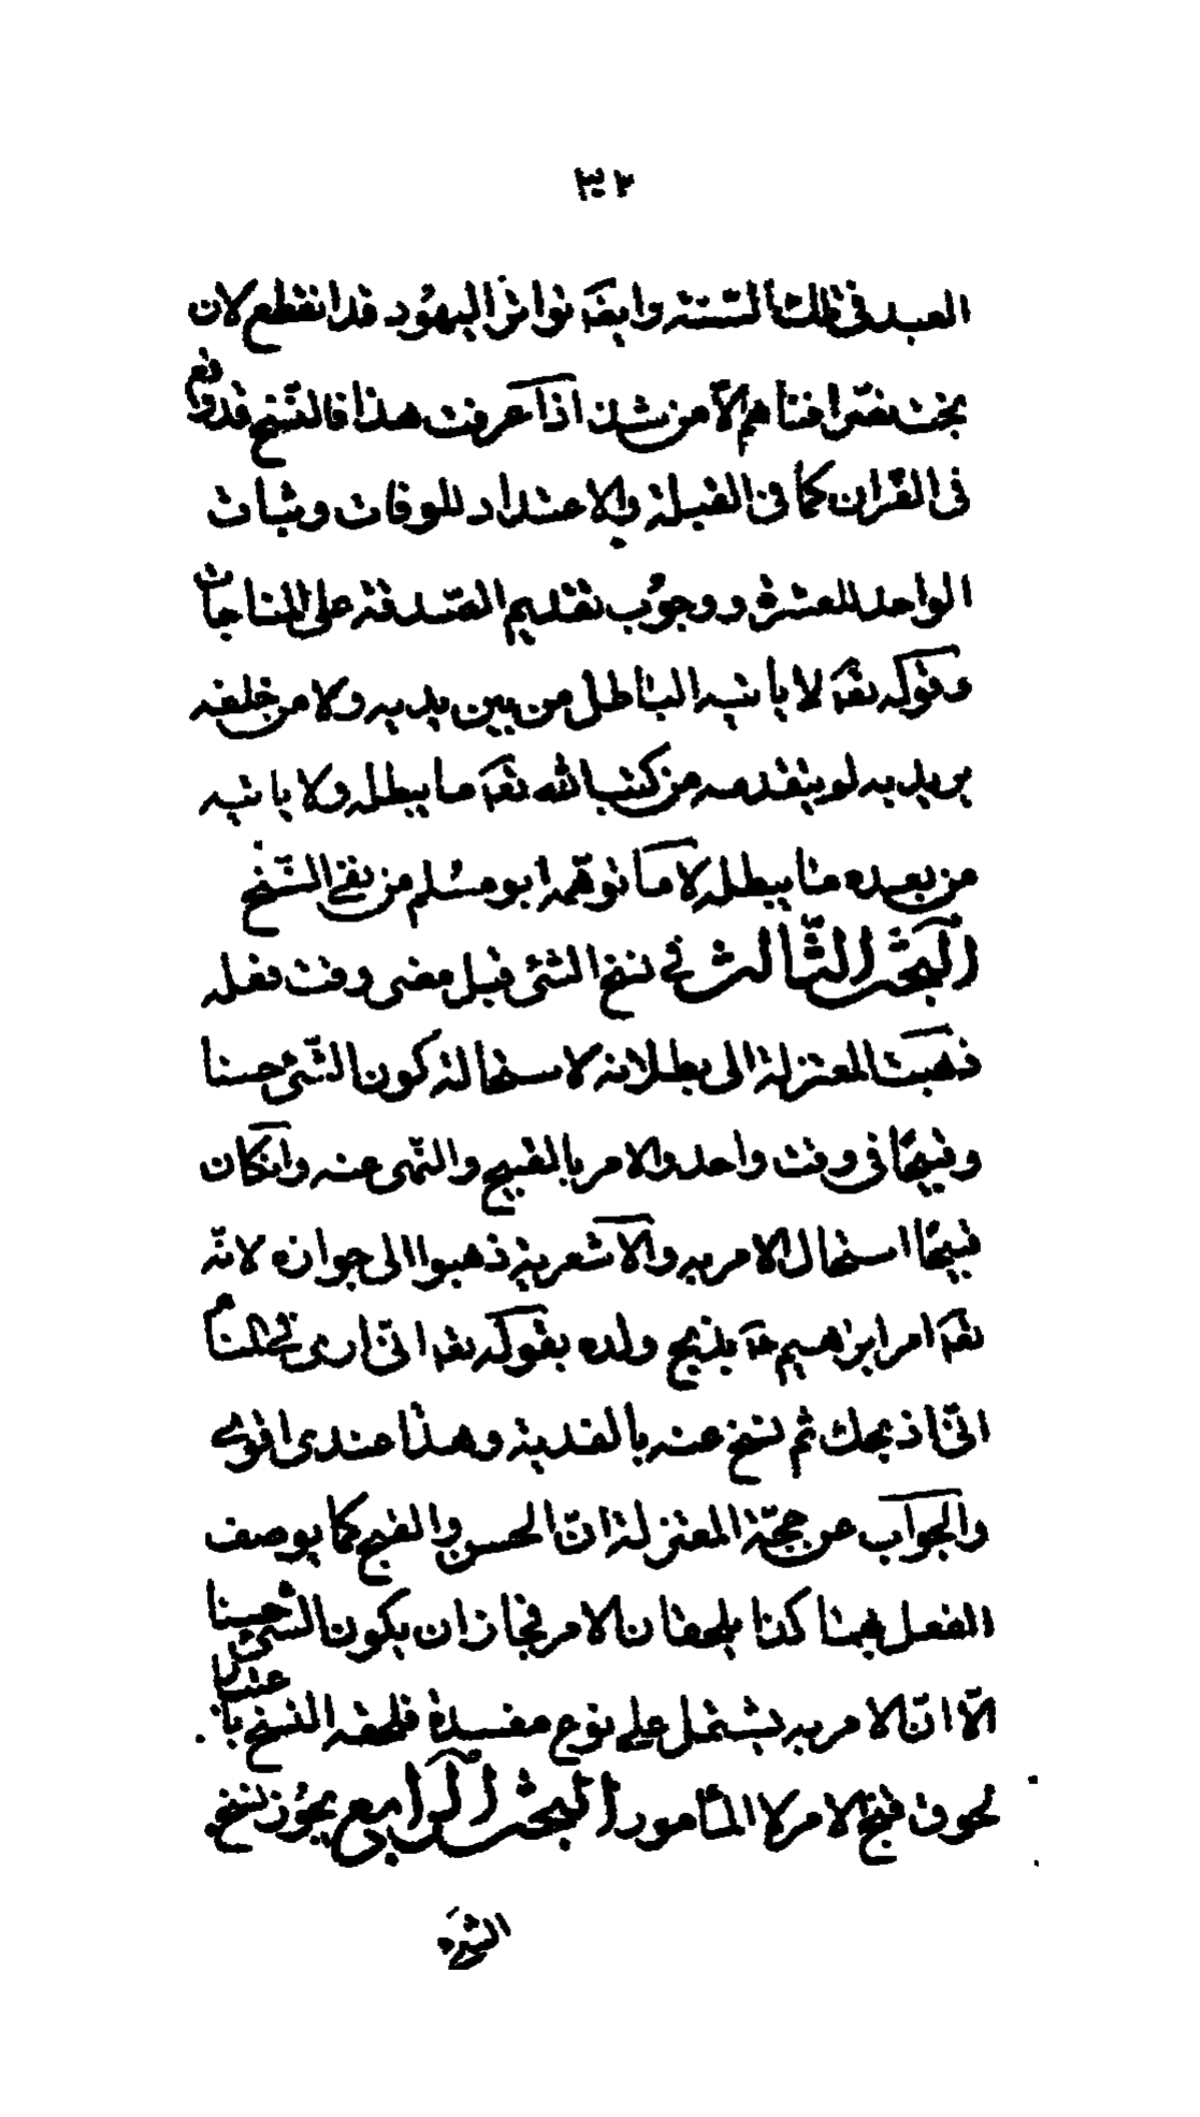 ٣٢
العبد فى تلك السّنة وايضَ تواترَ اليهُود قد انقطع لان
بخت نصّر افناهم الّا من شذ اذا عرفت هذا فالنّسخ قد وقع
فى القرٰان كما فى القبلة والاعتداد للوفات وثبات
الواحد للعشرة ووجوُب تقديم الصّدقة على المناجات
وقوله تعَ لا ياتيه الباطل من بين يديه ولا من خلفه
يريد به لو يتقدمه من كتب الله تعَ ما يبطله ولا ياتيه
من بعده ما يبطله لا ما توهّمه ابو مسُلم من نفى النّسخ
البحث الثّالث فى نسخ الشئ قبل مضى وقت فعله
ذهبت المعتزلة الى بطلانه لاستحالة كون الشّئ حسنا
وقبيحًا فى وقت واحد والامر بالقبيح والنّهى عنه وان كان
قبيحًا استحال الامر به والاشعرية ذهبوا الى جوازه لانّه
تعَ امر ابرٰهيم عَ بذبح ولده بقوله تعَ انّى ارى فى المنام
انّى اذبحك ثم نسخ عنه بالفدية وهذا عندى اقوى
والجواب عن حجّة المعتزلة انّ الحسن والقبح كما يوصف
الفعل بهما كذا يلحقان الامر فجاز ان يكون الشئ حسنا
الّا انّ الامر به يشتمل على نوع مفسدة فلحقه النسخ باعتبار
لحوق قبح الامر لا المأمور البحث الرابع يجوُز نسخ
الشئ